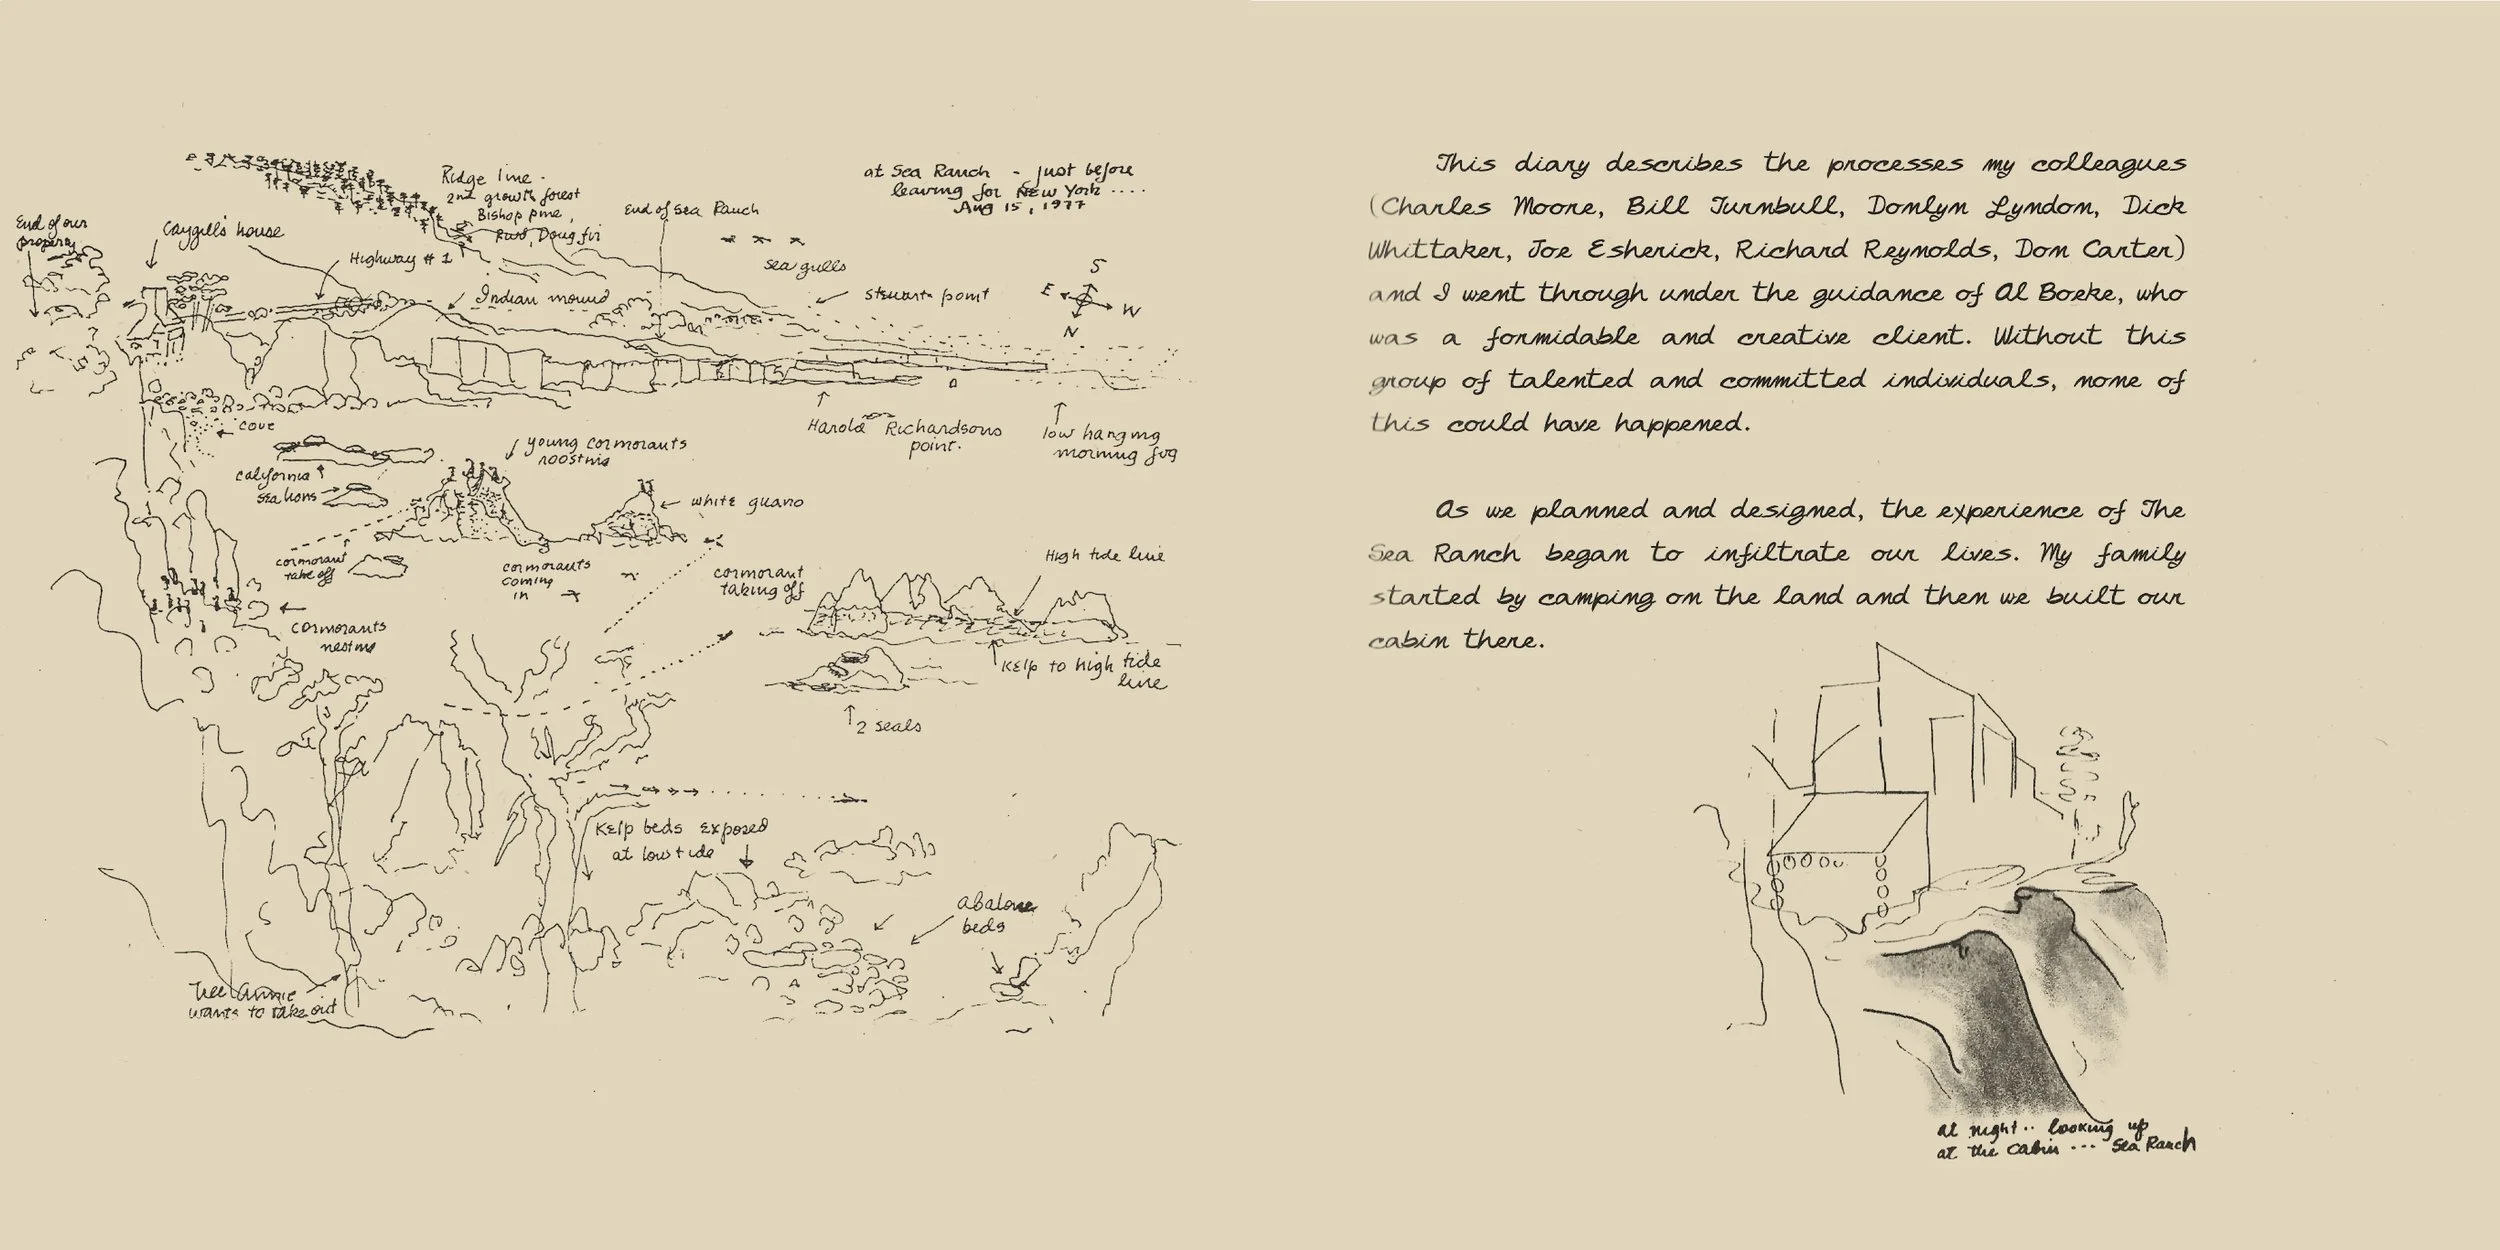 at Sea Ranch - just before
leaving for New York ....
Aug 15, 1977
Ridge line -
2nd growth forest
Bishop pine,
Doug fir
End of Sea Ranch
End of our
property
Caygill's house
Highway # 1
sea gulls
Indian mound
Stewarts point
S
E
W
N
Harold Richardsons
point.
low hanging
morning fog
cove
young cormorants
roosting
California
sea lions
white guano
cormorant
take off
cormorants
coming
in
cormorant
taking off
High tide line
cormorants
nesting
Kelp to high tide
line
2 seals
Kelp beds exposed
at low tide
abalone
beds
Tree Annie
wants to take out
This diary describes the processes my colleagues
(Charles Moore, Bill Turnbull, Donlyn Lyndon, Dick
Whittaker, Joe Esherick, Richard Reynolds, Don Carter)
and I went through under the guidance of Al Boeke, who
was a formidable and creative client. Without this
group of talented and committed individuals, none of
this could have happened.
As we planned and designed, the experience of The
Sea Ranch began to infiltrate our lives. My family
started by camping on the land and then we built our
cabin there.
at night .. looking up
at the cabin ... Sea Ranch